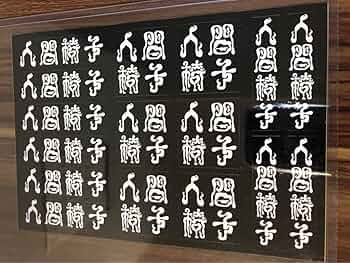 人間椅子
人間椅子
人間椅子
人間椅子
人間椅子
人間椅子
人間
椅子
人間
椅子
人間
椅子
人間
椅子
人間
椅子
人間
椅子
人間椅子
人間椅子
人間椅子
人間椅子